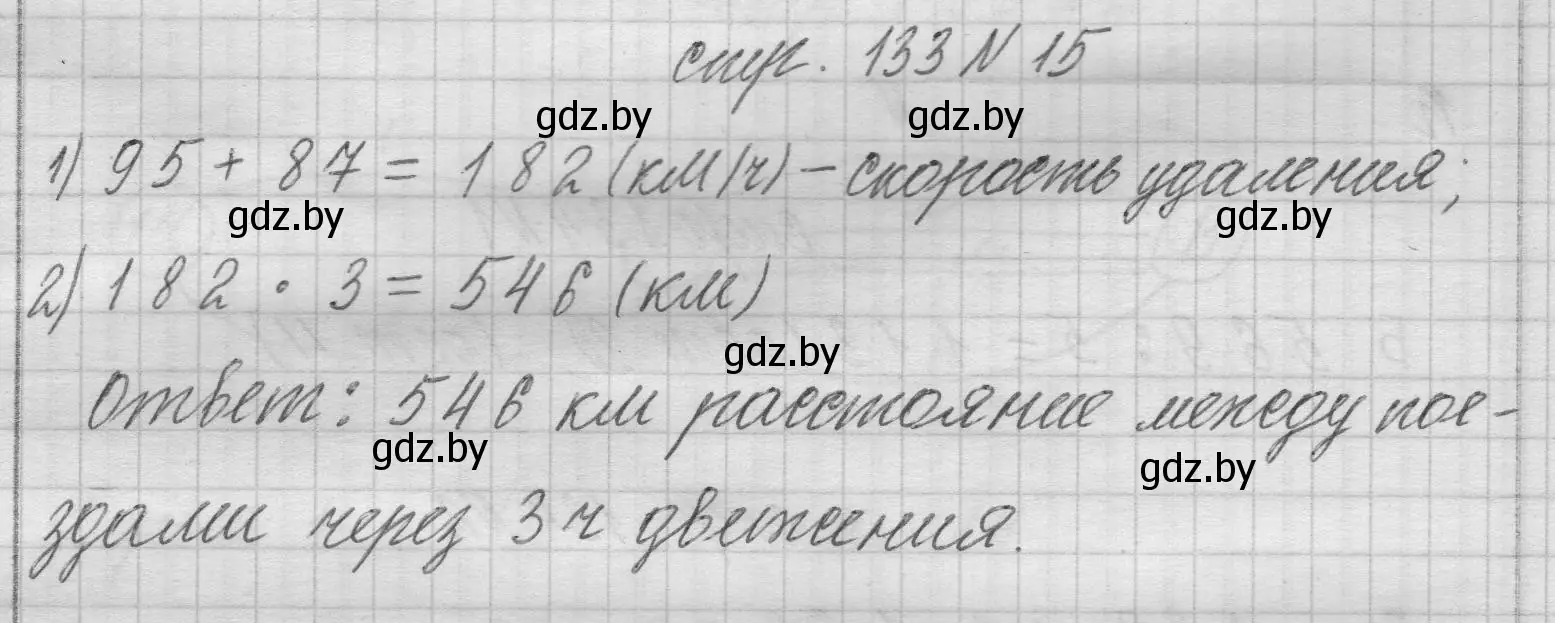 стр. 133 N 15
gdz.by gdz.by
1) 95 + 87 = 182 (км/ч) – скорость удаления;
gdz.by gdz.by
2) 182 · 3 = 546 (км)
gdz.by
Ответ: 546 км расстояние между пое-
gdz.by gdz.by
здами через 3 ч движения.